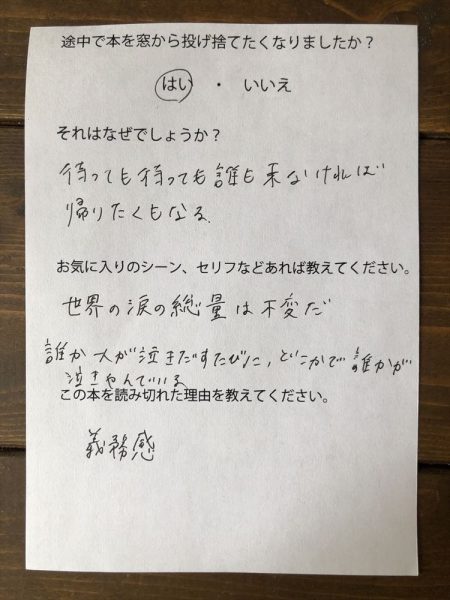 途中で本を窓から投げ捨てたくなりましたか？
はい ・ いいえ
それはなぜでしょうか？
待っても待っても誰も来ないければ
帰りたくもなる。
お気に入りのシーン、セリフなどあれば教えてください。
世界の涙の総量は不変だ
誰か一人が泣きだすたびに、どこかで誰かが
泣きやんでいる
この本を読み切れた理由を教えてください。
義務感